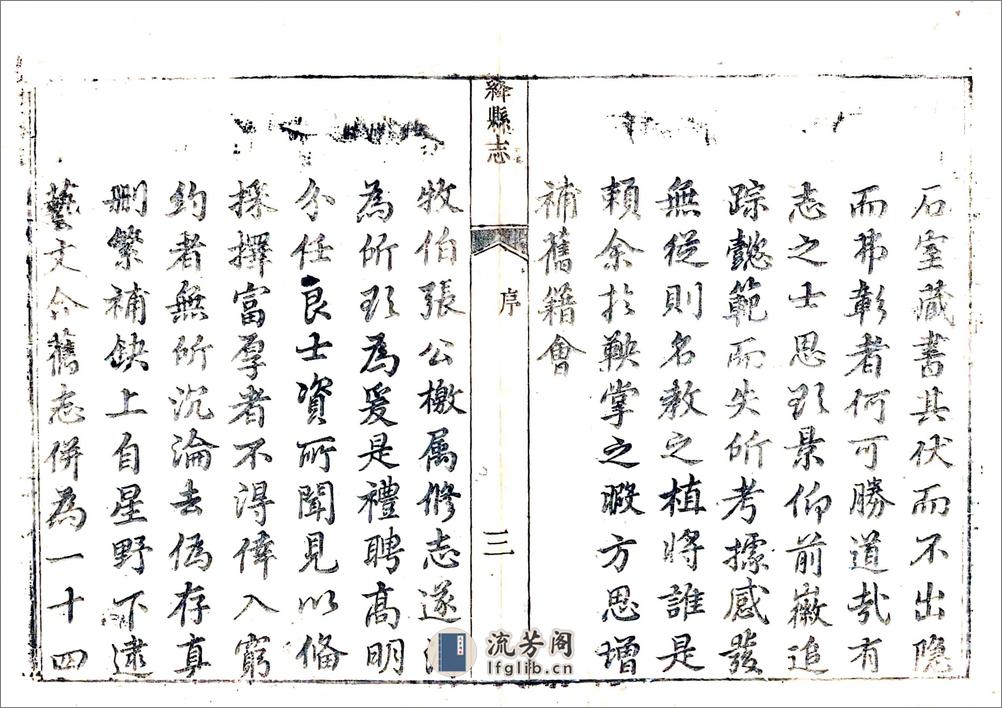 石室藏書其伏而不出隐
而弗彰者何可勝道哉有
志之士思欲景仰前徽追
踪懿範而失所考據感發
無從則名教之植將誰是
賴余於鞅掌之暇方思增
補舊籍會
絳縣志
序
三
牧伯張公檄属修志遂
為所欲為爰是禮聘髙明
分任良士資所聞見以脩
採擇富厚者不得倖入窮
約者無所沉淪去偽存真
刪繁補缺上自星野下逮
藝文合舊志併為一十四
流芳阁
lfglib.cn